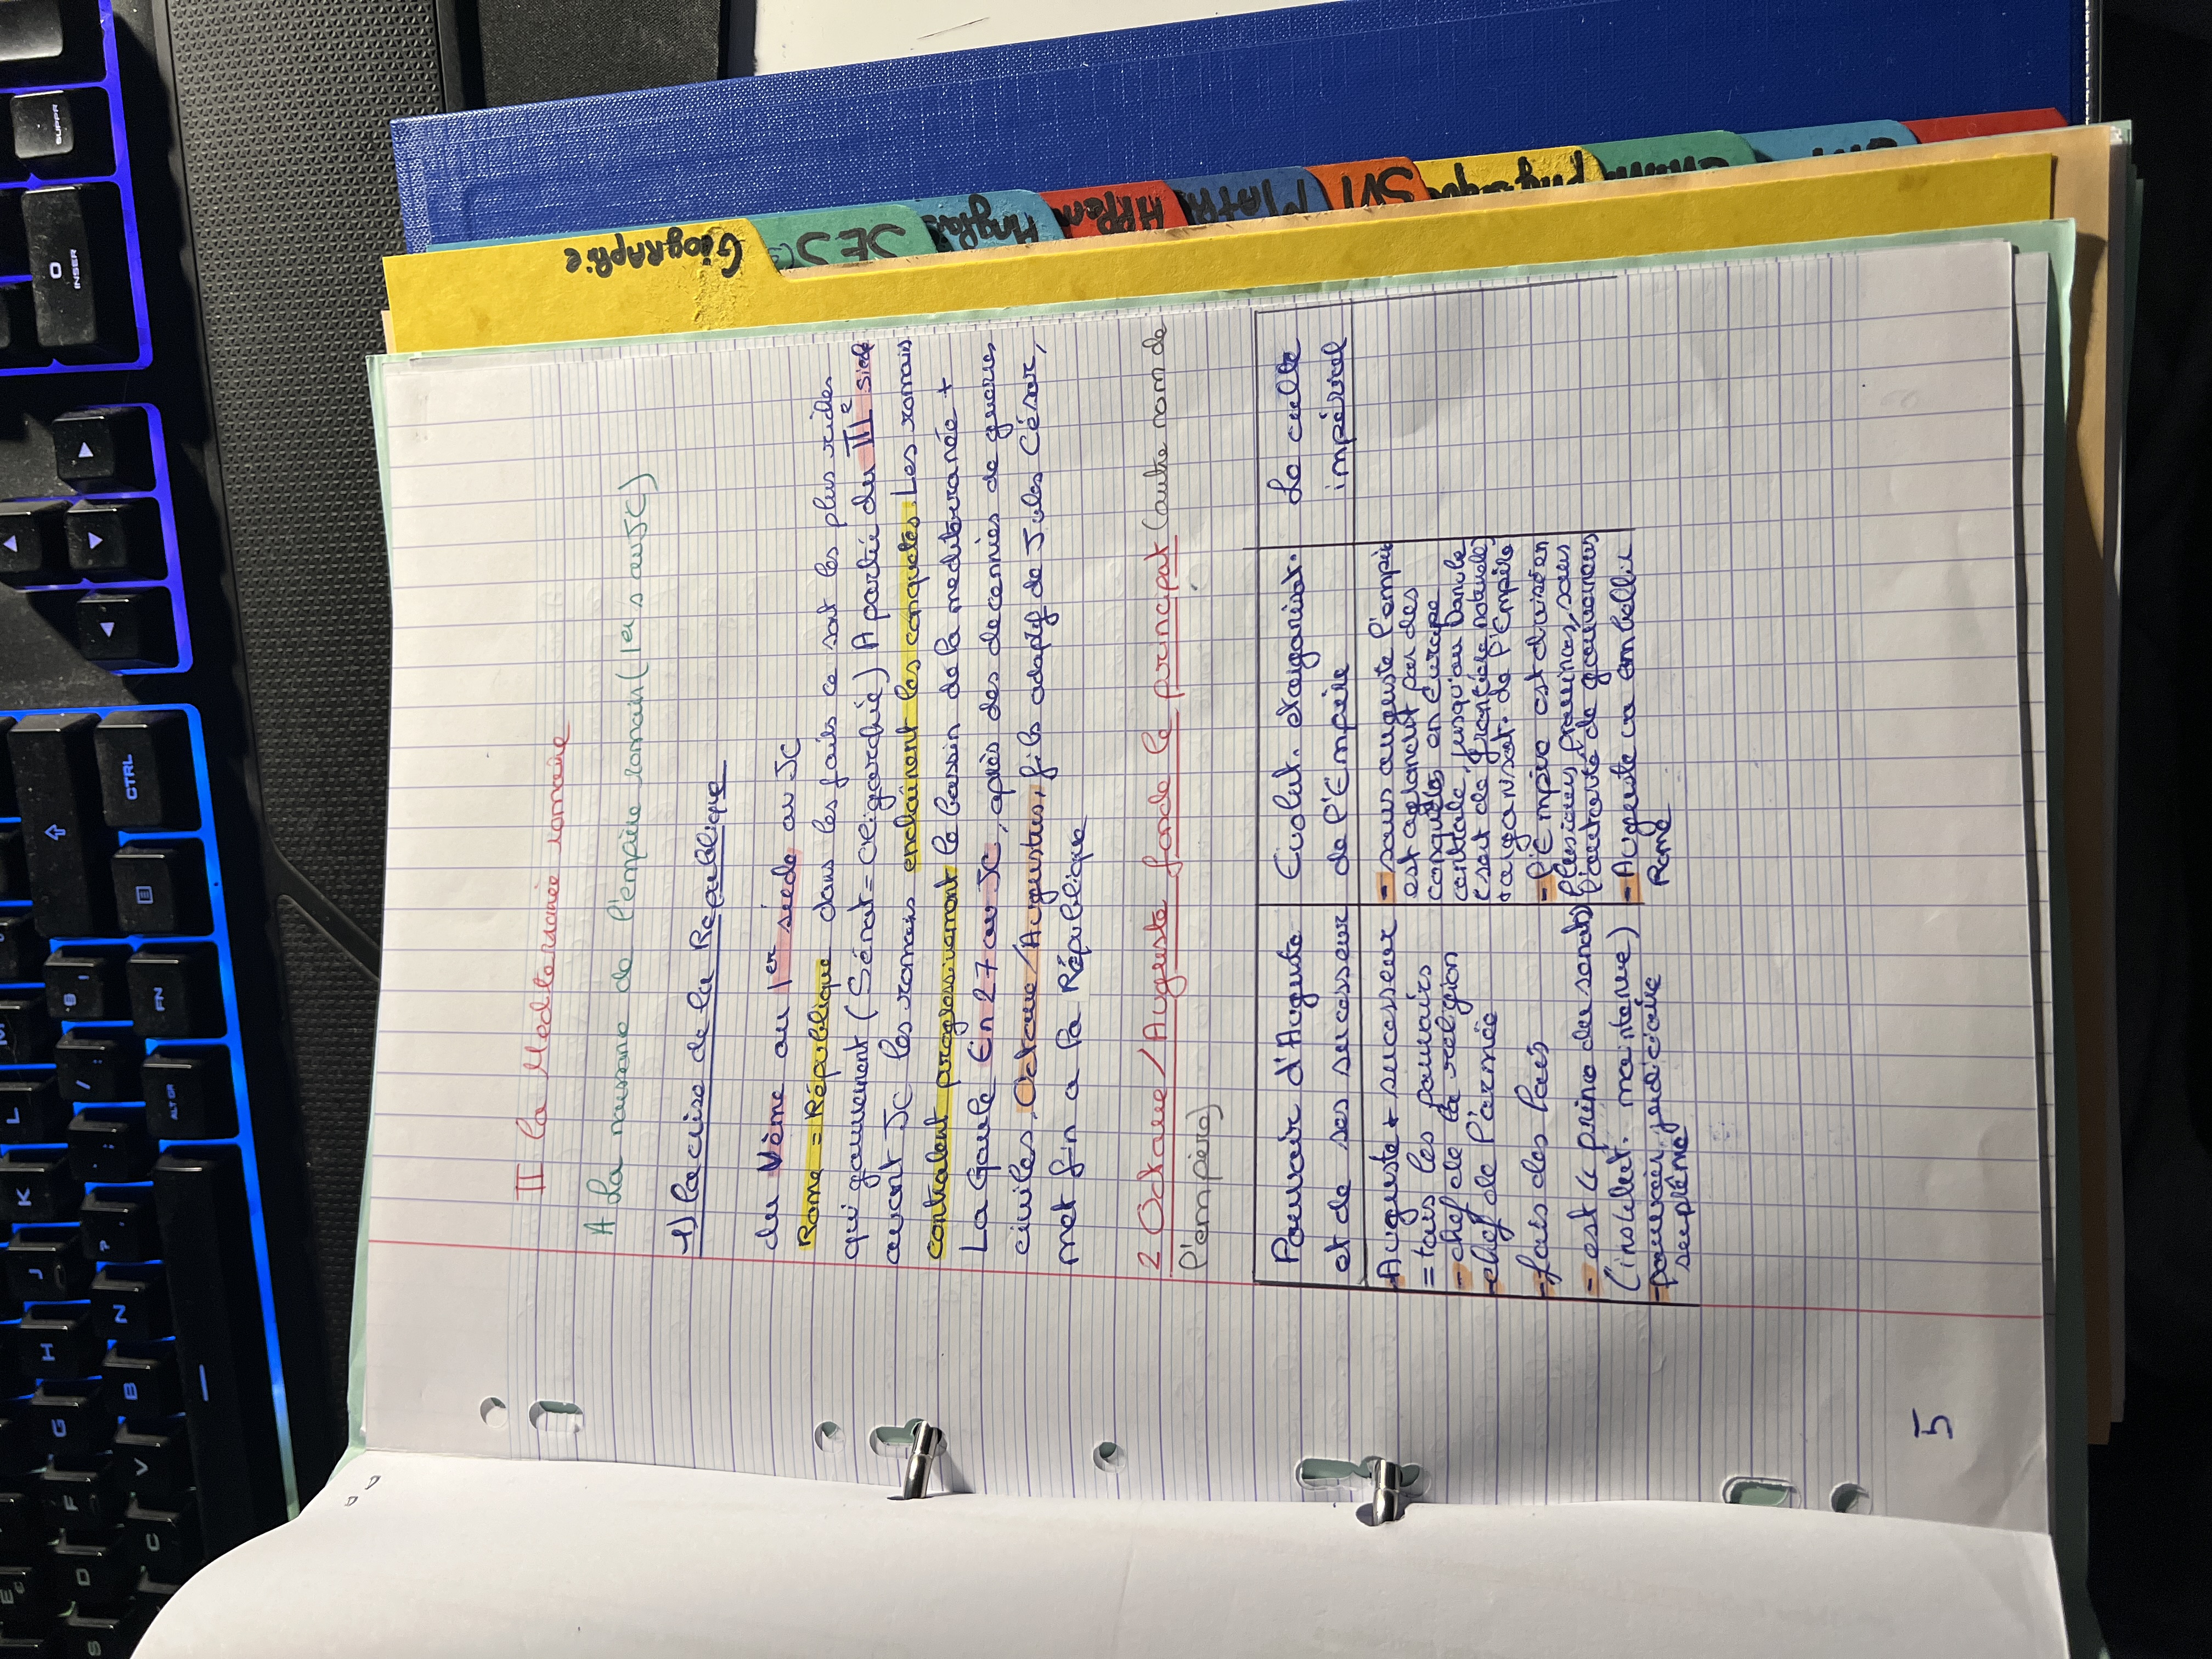 II la Mediterranée romaine
A La naissance de l'empire romain (1er s av JC)
1) la crise de la République
du Vème au 1er siècle av JC
Rome = République dans les faits ce sont les plus riches
qui gouvernent (Sénat = oligarchie) A partir du III e siècle
avant JC les romains enchainent les conquetes. Les romais
controlent progressivement le bassin de la mediteranée +
La Gaule En 27 av JC, après des decennies de guerres
civiles, Octave/Augustus, fils adoptif de Jules César,
met fin a la République
2 Octave/Auguste fonde le principat (autre nom de
l'empire)
Pouvoir d'Auguste
et de ses sucesseur
- Auguste + sucesseur
= tous les pouvoirs
- chef de la religion
- chef de l'armée
- fais des lois
- est le princ du senat
(institut. maintenue)
- pouvoir judiciaire
suplême
Evolut. organisat.
de l'Empire
- sous auguste l'empire
est agrandit par des
conquêtes en europe
centrale, jusqu'au Danube
+ organisat. de l'Empire
- l'Empire est divisé en
plusieurs provinces, sous
l'autorité de gouverneurs
- Auguste va embellir
Rome
Le culte
impérial
5
Géographie
SES
Anglais
MATH
SVT
physique
SUPPR
0
INSER
CTRL
FN
ALT GR
M
L
K
J
H
N
B
G
V
F
C
D
E
S